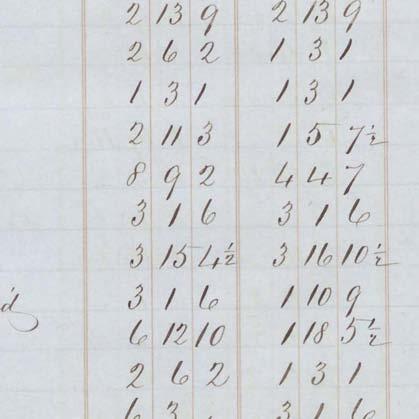 2 13 9 2 13 9
2 6 2 1 3 1
1 3 1 1 3 1
2 11 3 1 5 7½
8 9 2 4 4 7
3 1 6 3 1 6
3 15 4½ 3 16 10½
3 1 6 1 10 9
6 12 10 1 18 5½
2 6 2 1 3 1
6 3 3 1 6